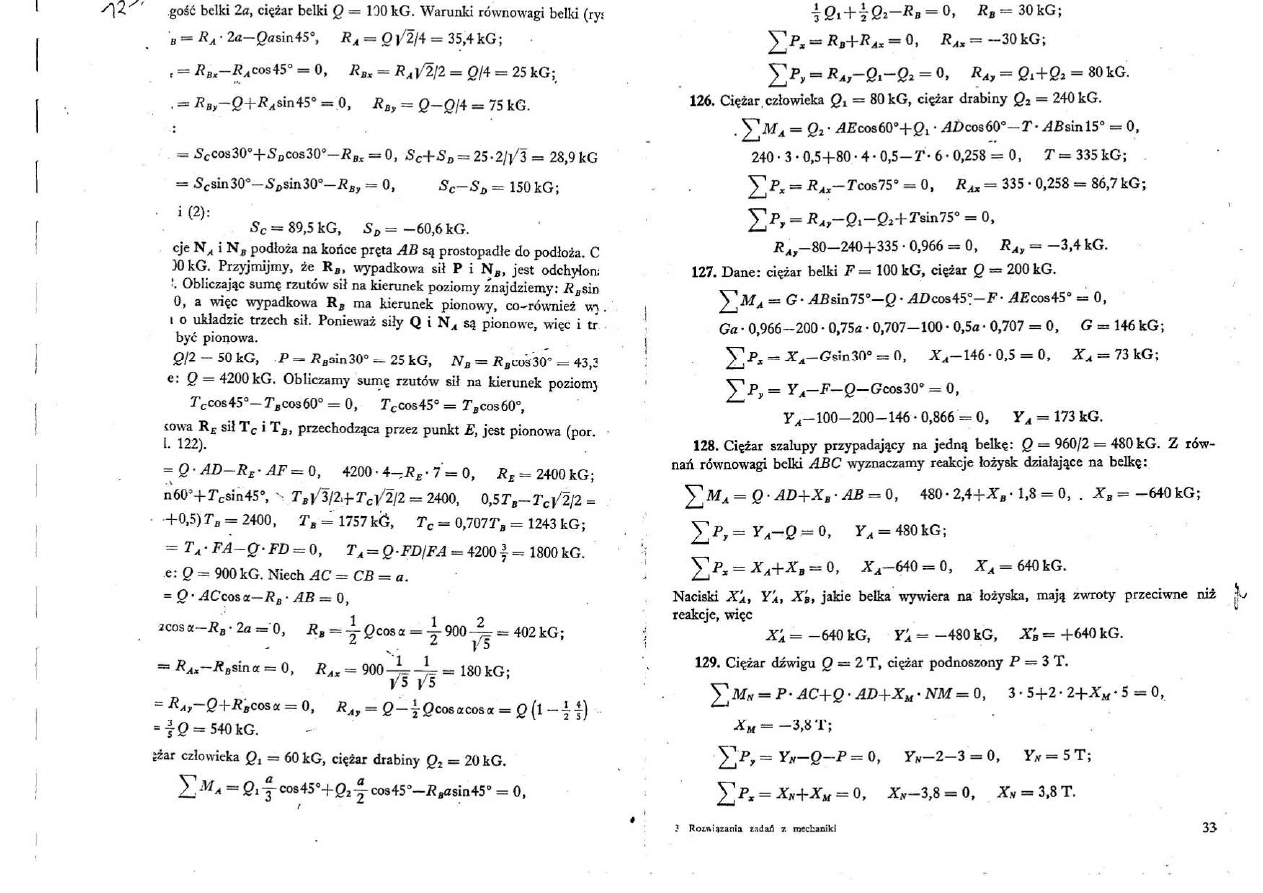 12
gość belki 2a, ciężar belki Q = 100 kG. Warunki równowagi belki (rys
B = R_A · 2a—Qasin45°, R_A = Q√2/4 = 35,4 kG;
= R_Bx—R_A cos45° = 0, R_Bx = R_A√2/2 = Q/4 = 25 kG;
= R_By—Q+R_A sin45° = 0, R_By = Q—Q/4 = 75 kG.
:
= S_C cos30°+S_D cos30°—R_Bx = 0, S_C+S_D = 25·2/√3 = 28,9 kG
= S_C sin30°—S_D sin30°—R_By = 0, S_C—S_D = 150 kG;
i (2):
S_C = 89,5 kG, S_D = —60,6 kG.
cje N_A i N_B podłoża na końce pręta AB są prostopadłe do podłoża. C
00 kG. Przyjmijmy, że R_B, wypadkowa sił P i N_B, jest odchylon
. Obliczając sumę rzutów sił na kierunek poziomy znajdziemy: R_B sin
0, a więc wypadkowa R_B ma kierunek pionowy, co również wy
o układzie trzech sił. Ponieważ siły Q i N_A są pionowe, więc i tr
być pionowa.
Q/2 — 50 kG, P = R_B sin30° = 25 kG, N_B = R_B cos30° = 43,3
e: Q = 4200 kG. Obliczamy sumę rzutów sił na kierunek poziomy
T_C cos45°—T_B cos60° = 0, T_C cos45° = T_B cos60°,
kowa R_E sił T_C i T_B, przechodząca przez punkt E, jest pionowa (por.
l. 122).
= Q · AD—R_E · AF = 0, 4200 · 4—R_E · 7 = 0, R_E = 2400 kG;
n60°+T_C sin45°, T_B√3/2+T_C√2/2 = 2400, 0,5T_B—T_C√2/2 =
+0,5)T_B = 2400, T_B = 1757 kG, T_C = 0,707T_B = 1243 kG;
= T_A · FA—Q · FD = 0, T_A = Q·FD/FA = 4200 3/7 = 1800 kG.
e: Q = 900 kG. Niech AC = CB = a.
= Q · AC cos α—R_B · AB = 0,
acos α—R_B · 2a = 0, R_B = 1/2 Q cos α = 1/2 900 2/√5 = 402 kG;
= R_Ax—R_B sin α = 0, R_Ax = 900 1/√5 1/√5 = 180 kG;
= R_Ay—Q+R_B cos α = 0, R_Ay = Q—1/2 Q cos α cos α = Q (1—1/2 4/5)
= 3/5 Q = 540 kG.
ężar człowieka Q₁ = 60 kG, ciężar drabiny Q₂ = 20 kG.
∑M_A = Q₁ a/3 cos45°+Q₂ a/2 cos45°—R_B asin45° = 0,
1/3 Q₁+1/2 Q₂—R_B = 0, R_B = 30 kG;
∑P_x = R_B+R_Ax = 0, R_Ax = —30 kG;
∑P_y = R_Ay—Q₁—Q₂ = 0, R_Ay = Q₁+Q₂ = 80 kG.
126. Ciężar człowieka Q₁ = 80 kG, ciężar drabiny Q₂ = 240 kG.
∑M_A = Q₂ · AE cos60°+Q₁ · AD cos60°—T · AB sin15° = 0,
240 · 3 · 0,5+80 · 4 · 0,5—T · 6 · 0,258 = 0, T = 335 kG;
∑P_x = R_Ax—T cos75° = 0, R_Ax = 335 · 0,258 = 86,7 kG;
∑P_y = R_Ay—Q₁—Q₂+T sin75° = 0,
R_Ay—80—240+335 · 0,966 = 0, R_Ay = —3,4 kG.
127. Dane: ciężar belki F = 100 kG, ciężar Q = 200 kG.
∑M_A = G · AB sin75°—Q · AD cos45°—F · AE cos45° = 0,
Ga · 0,966—200 · 0,75a · 0,707—100 · 0,5a · 0,707 = 0, G = 146 kG;
∑P_x = X_A—G sin30° = 0, X_A—146 · 0,5 = 0, X_A = 73 kG;
∑P_y = Y_A—F—Q—G cos30° = 0,
Y_A—100—200—146 · 0,866 = 0, Y_A = 173 kG.
128. Ciężar szalupy przypadający na jedną belkę: Q = 960/2 = 480 kG. Z rów-
nań równowagi belki ABC wyznaczamy reakcje łożysk działające na belkę:
∑M_A = Q · AD+X_B · AB = 0, 480 · 2,4+X_B · 1,8 = 0, X_B = —640 kG;
∑P_y = Y_A—Q = 0, Y_A = 480 kG;
∑P_x = X_A+X_B = 0, X_A—640 = 0, X_A = 640 kG.
Naciski X′_A, Y′_A, X′_B, jakie belka wywiera na łożyska, mają zwroty przeciwne niż
reakcje, więc
X′_A = —640 kG, Y′_A = —480 kG, X′_B = +640 kG.
129. Ciężar dźwigu Q = 2 T, ciężar podnoszony P = 3 T.
∑M_N = P · AC+Q · AD+X_M · NM = 0, 3 · 5+2 · 2+X_M · 5 = 0,
X_M = —3,8 T;
∑P_y = Y_N—Q—P = 0, Y_N—2—3 = 0, Y_N = 5 T;
∑P_x = X_N+X_M = 0, X_N—3,8 = 0, X_N = 3,8 T.
3 Rozwiązania zadań z mechaniki 33